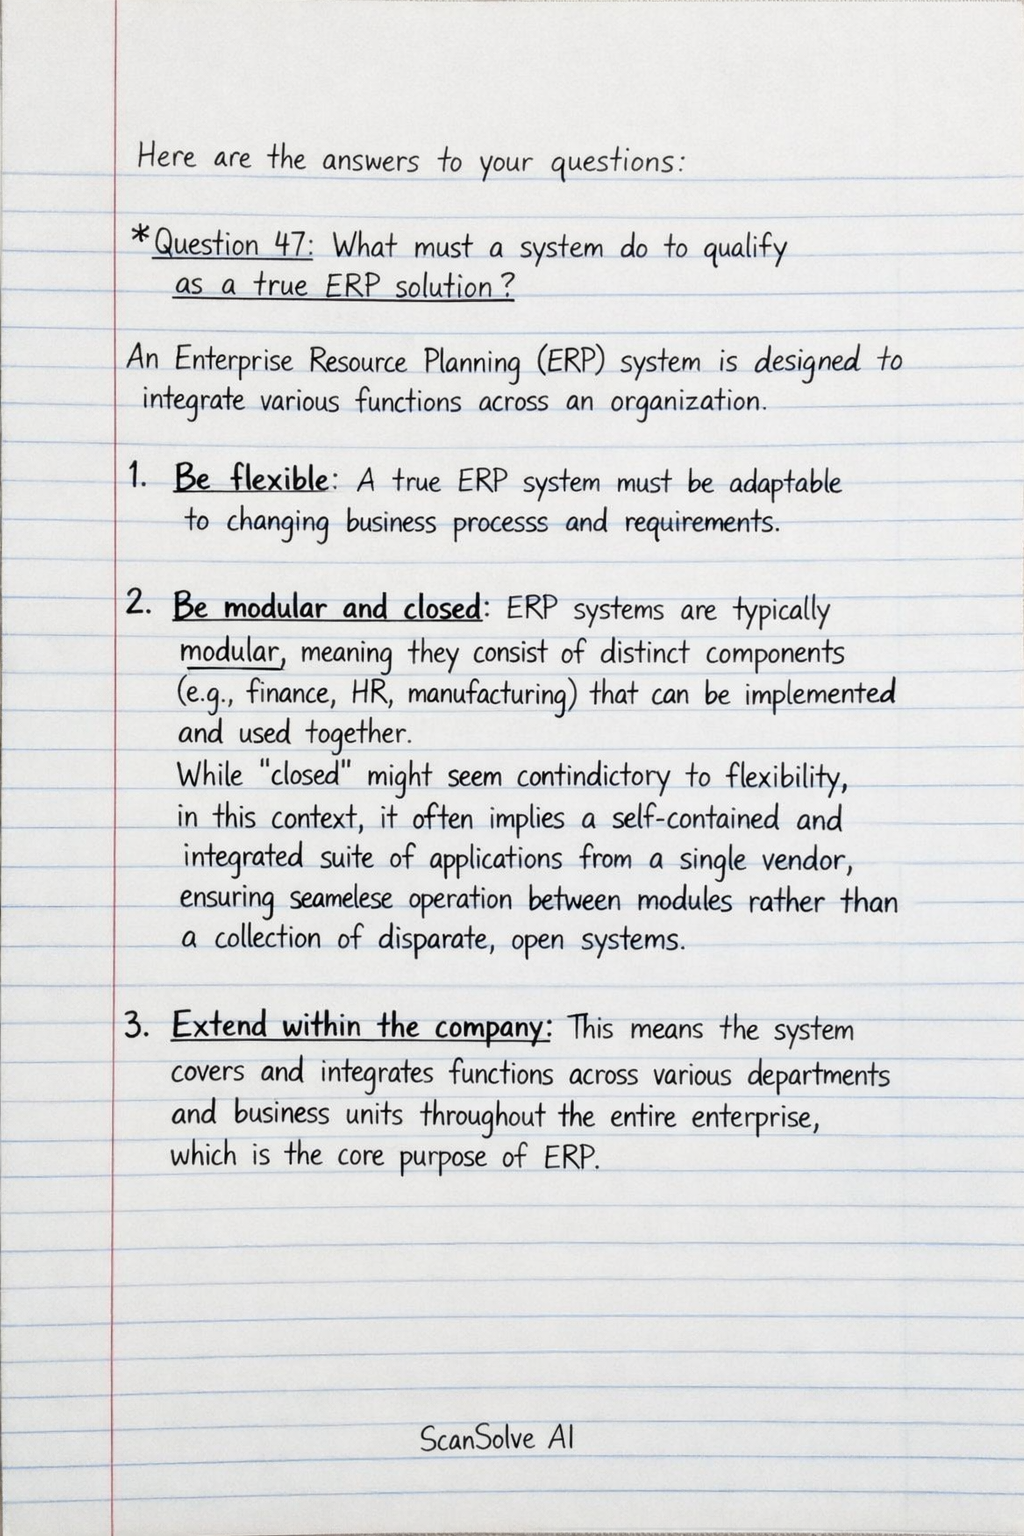 Here are the answers to your questions:
*Question 47: What must a system do to qualify
as a true ERP solution?
An Enterprise Resource Planning (ERP) system is designed to
integrate various functions across an organization.
1. Be flexible: A true ERP system must be adaptable
to changing business processs and requirements.
2. Be modular and closed: ERP systems are typically
modular, meaning they consist of distinct components
(e.g., finance, HR, manufacturing) that can be implemented
and used together.
While "closed" might seem contindictory to flexibility,
in this context, it often implies a self-contained and
integrated suite of applications from a single vendor,
ensuring seamelese operation between modules rather than
a collection of disparate, open systems.
3. Extend within the company: This means the system
covers and integrates functions across various departments
and business units throughout the entire enterprise,
which is the core purpose of ERP.
ScanSolve AI